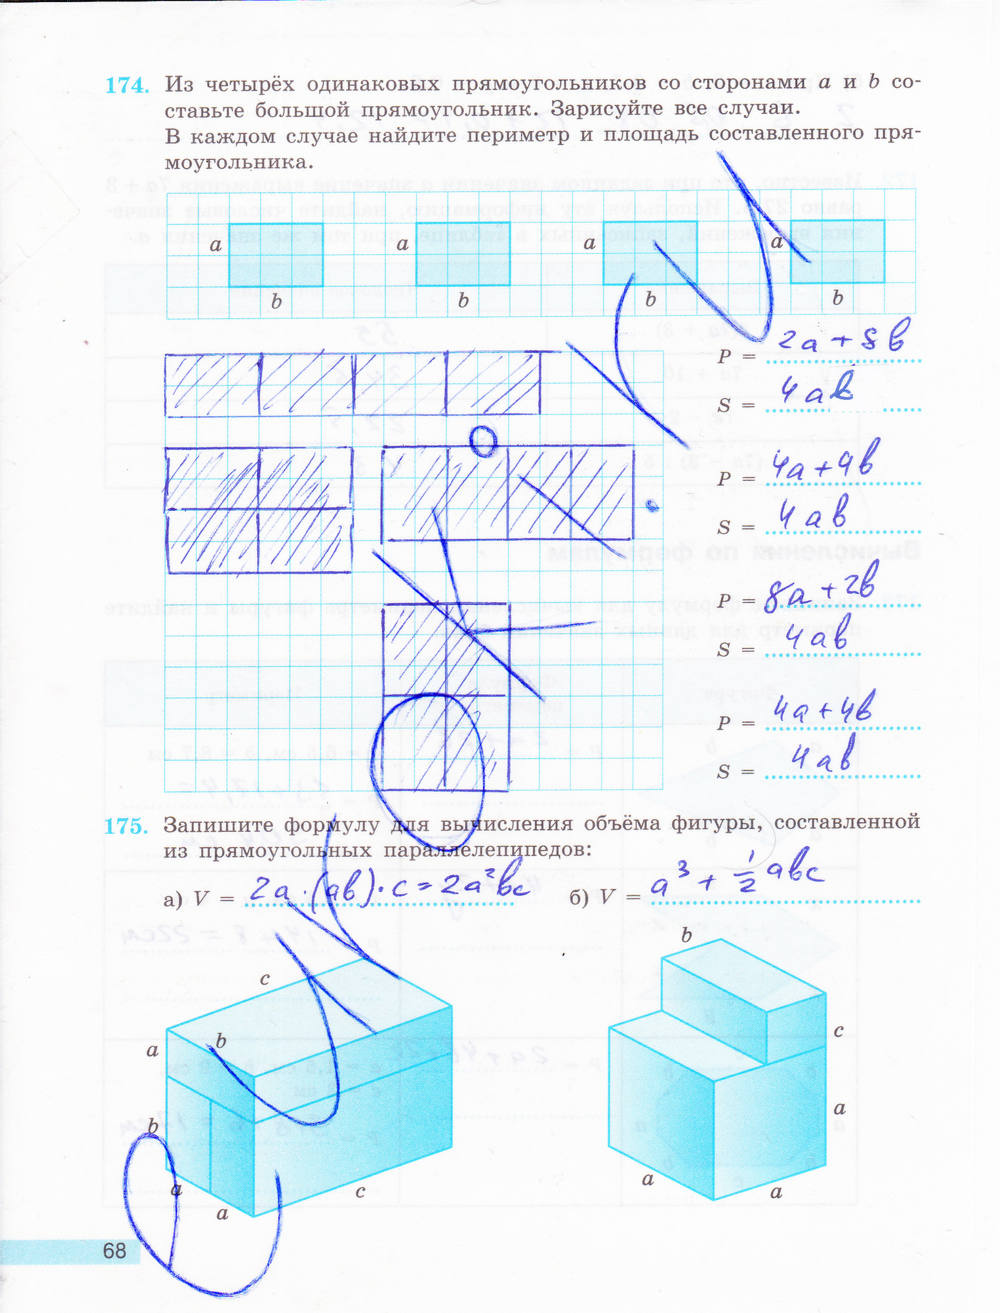 174. Из четырёх одинаковых прямоугольников со сторонами a и b со-
ставьте большой прямоугольник. Зарисуйте все случаи.
В каждом случае найдите периметр и площадь составленного пря-
моугольника.
a a a a
b b b b
P = 2a + 8b
S = 4ab
P = 4a + 4b
S = 4ab
P = 8a + 2b
S = 4ab
P = 4a + 4b
S = 4ab
175. Запишите формулу для вычисления объёма фигуры, составленной
из прямоугольных параллелепипедов:
а) V = 2a · (ab) · c = 2a²bc б) V = a³ + 1/2 abc
c b
a b c
b a
a c a a
a
68